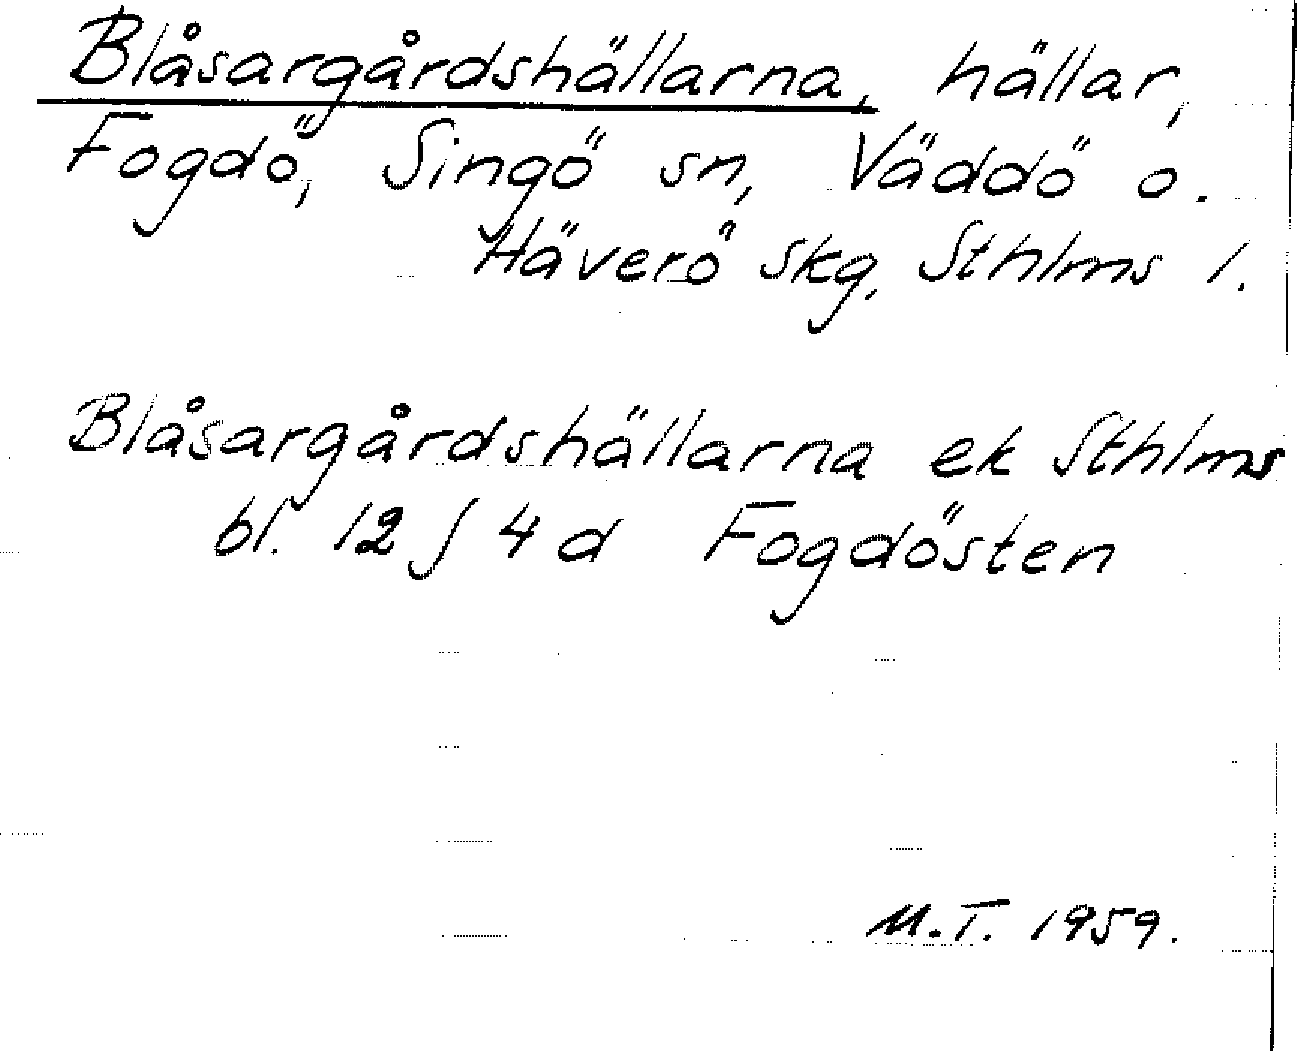 Blåsargårdshällarna, hällar,
Fogdö, Singö sn, Väddö o.
Häverö skg, Sthlms l.
Blåsargårdshällarna ek Sthlms
bl. 12 J 4 d Fogdösten
M.T. 1959.